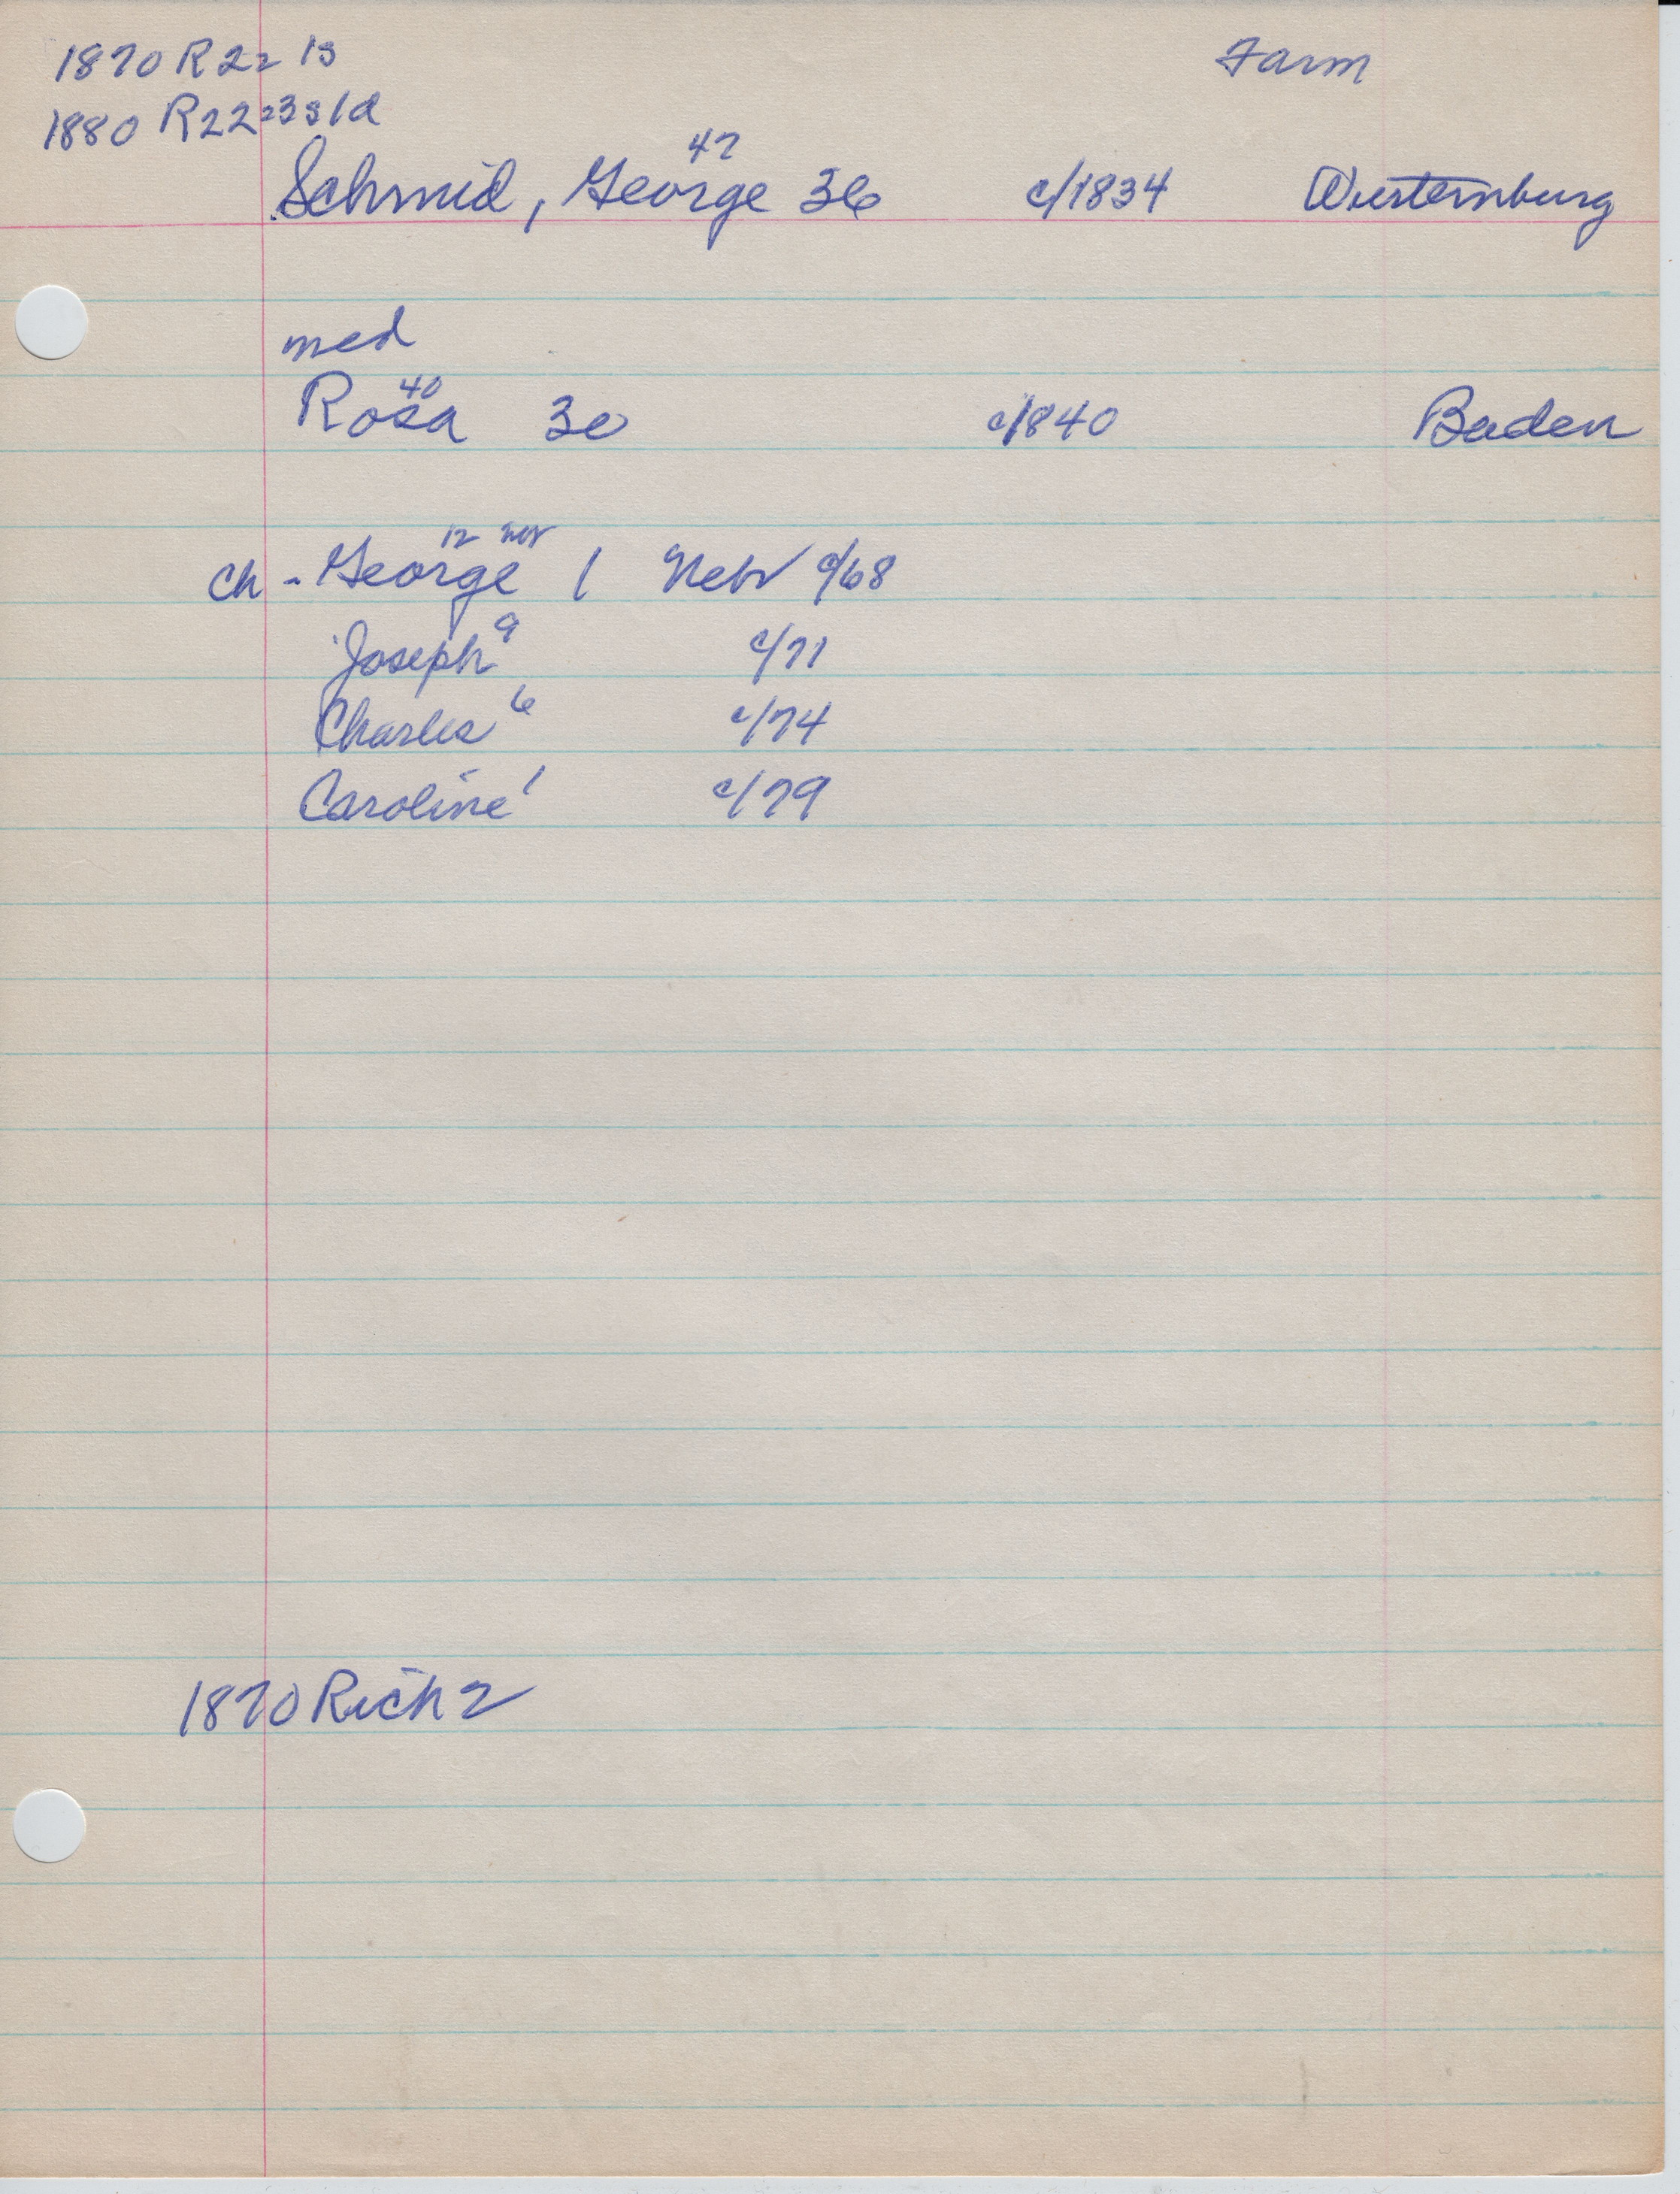 1870 R22 1s
Farm
1880 R22 23s1d
47
Schmid, George 36 c/1834 Wurternburg
med
40
Rosa 30 c/1840 Baden
12
ch - George 1 Nebr c/68
Joseph 9 c/71
Charles 6 c/74
Caroline 1 c/79
1870 Rich 2